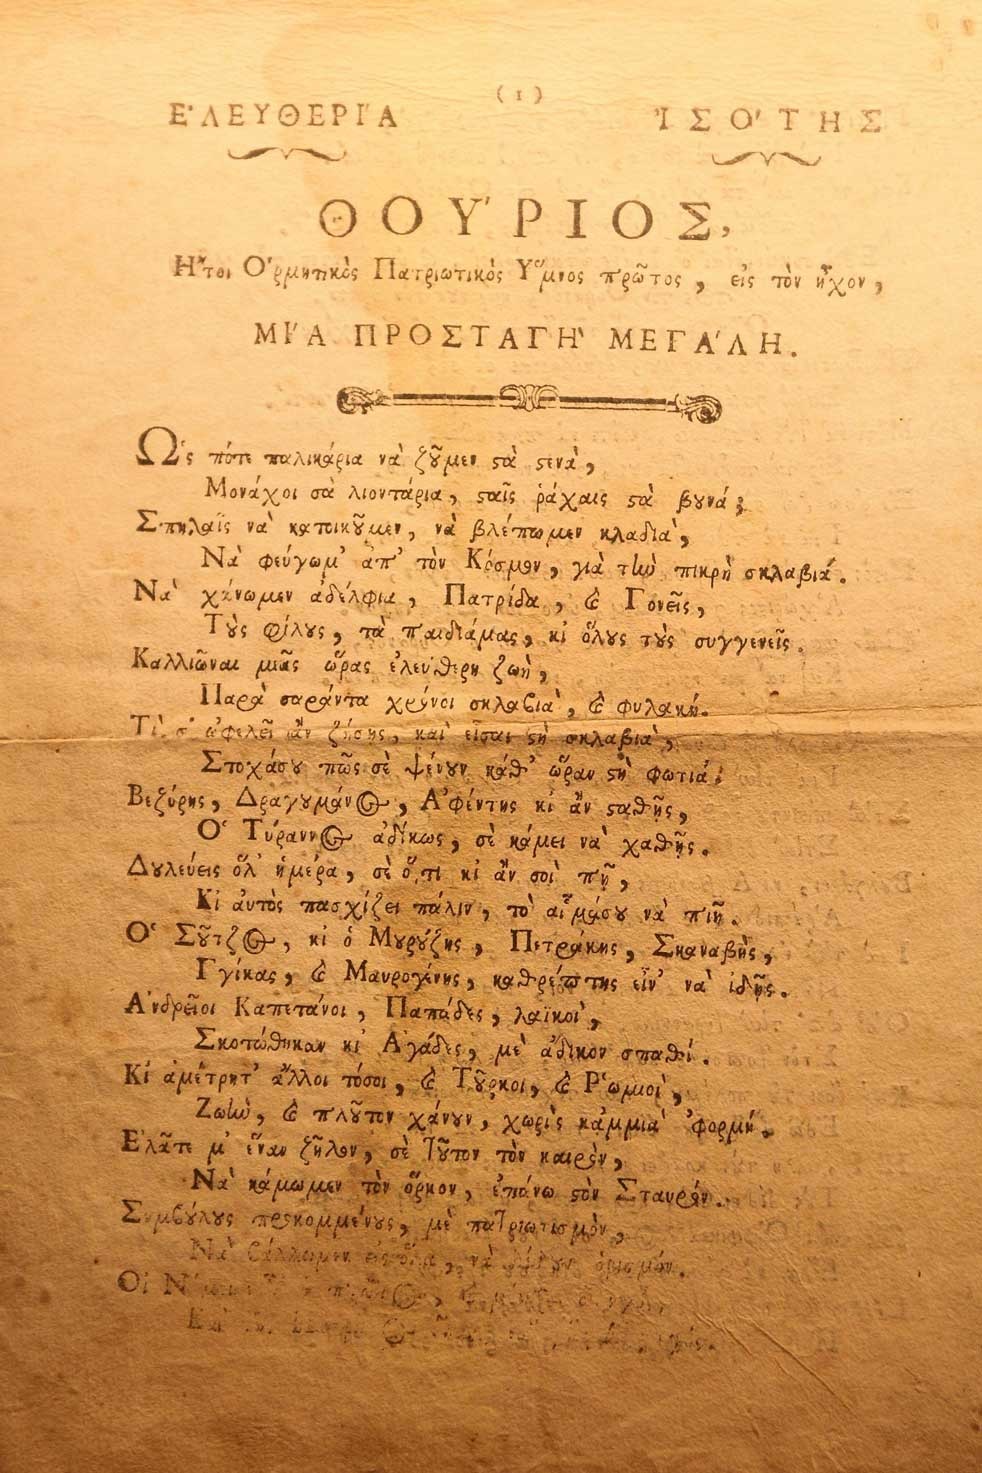 (1)
ἘΛΕΥΘΕΡΊΑ ἸΣΌΤΗΣ
ΘΟΎΡΙΟΣ,
Ἤτοι Ὁρμητικὸς Πατριωτικὸς Ὕμνος πρῶτος, εἰς τὸν ἦχον,
ΜΊΑ ΠΡΟΣΤΑΓῊ ΜΕΓΆΛΗ.
Ὡς πότε παλικάρια νὰ ζȣ͂μεν ϛὰ ϛενὰ,
Μονάχοι σὰ λιοντάρια, ϛαῖς ῥάχαις ϛὰ βȣνά;
Σπηλαῖς νὰ κατοικȣ͂μεν, νὰ βλέπωμεν κλαδιὰ,
Νὰ φεύγωμ' ἀπ' τὸν Κόσμον, γιὰ τὴν πικρὴ σκλαβιά.
Νὰ χάνωμεν ἀδέλφια, Πατρίδα, ϗ Γονεῖς,
Τȣ̀ς φίλȣς, τὰ παιδιάμας, κι ὅλȣς τȣ̀ς συγγενεῖς.
Καλλιῶναι μιᾶς ὥρας ἐλεύθερη ζωὴ,
Παρὰ σαράντα χρόνοι σκλαβιὰ, ϗ φυλακή.
Τὶ σ' ὠφελεῖ ἂν ζήσῃς, καὶ εἶσαι ϛὴ σκλαβιὰ,
Στοχάσȣ πῶς σὲ ψένȣν κάθ' ὥραν ϛὴ φωτιά.
Βεζύρης, Δραγȣμάνος, Ἀφέντης κι ἂν ϛαθῇς,
Ὁ Τύραννος ἀδίκως, σὲ κάμει νὰ χαθῇς.
Δȣλεύεις ὅλ' ἡμέρα, σὲ ὅ,τι κι ἂν σοὶ πῇ,
Κι αὐτὸς πασχίζει πάλιν, τὸ αἷμάσȣ νὰ πιῇ.
Ὁ Σȣ͂τζος, κι ὁ Μȣρȣ́ζης, Πετράκης, Σκαναβὴς,
Γγίκας, ϗ Μαυρογένης, καθρέπτης εἶν' νὰ ἰδῇς.
Ἀνδρεῖοι Καπετάνοι, Παπάδες, λαϊκοὶ,
Σκοτώθηκαν κι Ἀγάδες, μὲ ἄδικον σπαθί.
Κι ἀμέτρητ' ἄλλοι τόσοι, ϗ Τȣ͂ρκοι, ϗ Ῥωμιοὶ,
Ζωὴν, ϗ πλȣ͂τον χάνȣν, χωρὶς κἀμμιὰ 'φορμή.
Ἐλᾶτε μ' ἕναν ζῆλον, σὲ τȣ͂τον τὸν καιρὸν,
Νὰ κάμωμεν τὸν ὅρκον, ἐπάνω ϛὸν Σταυρόν.
Συμβȣ́λȣς προκομμένȣς, μὲ πατριωτισμὸν,
Νὰ βάλλωμεν εἰς ὅλα, νὰ δίδȣν ὁρισμόν.
Οἱ